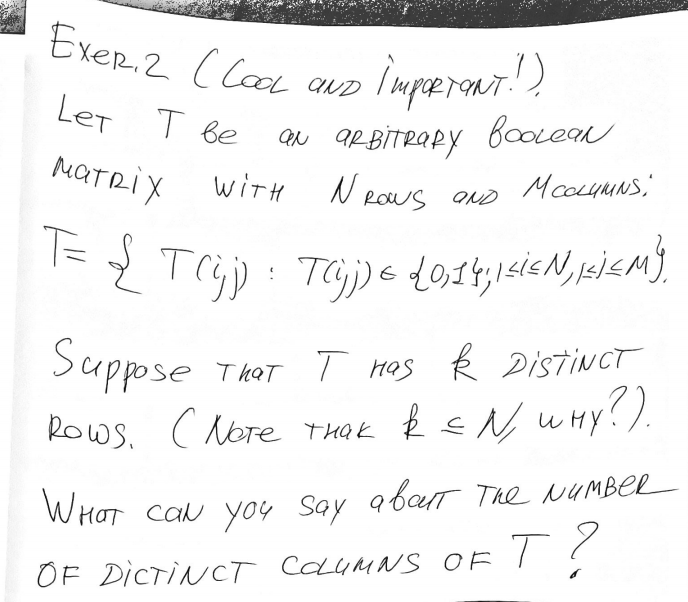 Exer.2 (Cool and important!).
Let T be an arbitrary Boolean
matrix with N rows and M columns:
T= { T(i,j) : T(i,j) ∈ {0,1}; 1≤i≤N, 1≤j≤M}.
Suppose that T has k distinct
rows. (Note that k ≤ N, why?).
What can you say about the number
of dictinct columns of T ?